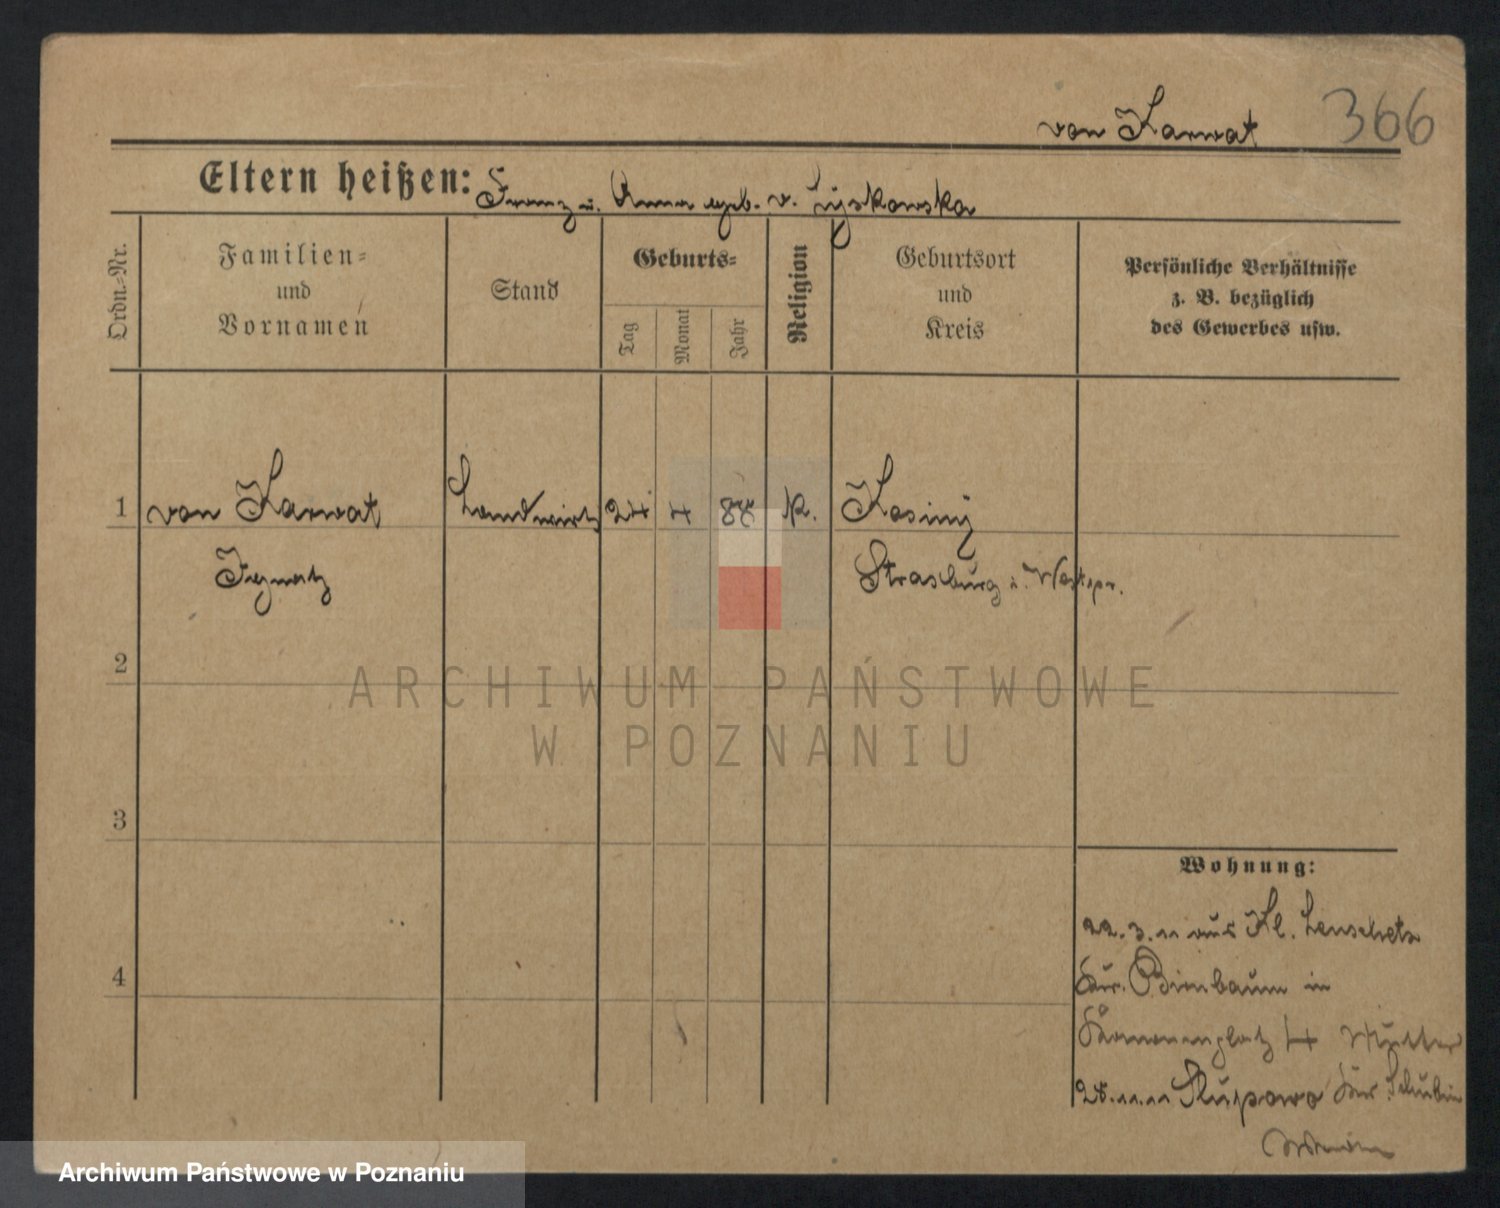 von Karwat 366
Eltern heißen: Franz u. Anna geb. v. Lyskowska
Ordn.-Nr.
Familien-
und
Vornamen
Stand
Geburts-
Tag
Monat
Jahr
Religion
Geburtsort
und
Kreis
Persönliche Verhältnisse
z. B. bezüglich
des Gewerbes usw.
1 von Karwat Landwirt 24 4 88 K. Kosiny
Ignatz Strasburg i. Westpr.
2
ARCHIWUM PAŃSTWOWE
W POZNANIU
3
Wohnung:
22.3.11 aus Kl. Lenschetz
4
Kr. Birnbaum in
Kronenplatz 4 Mutter
28.11.11 Slupowo Kr. Schubin
Archiwum Państwowe w Poznaniu